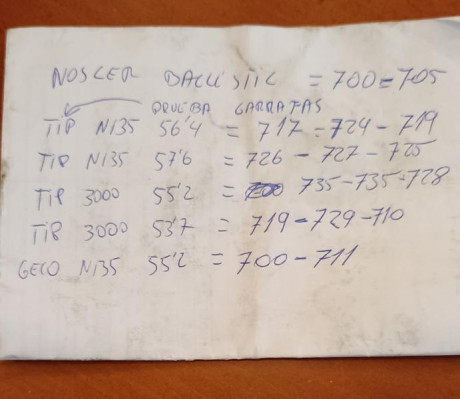 NOSLER BALLISTIC = 700 = 705
PRUEBA GARRAFAS
TIP N135 56'4 = 717 - 724 - 719
TIP N135 57'6 = 726 - 727 - 725
TIP 3000 55'2 = 735 - 735 - 728
TIP 3000 53'7 = 719 - 729 - 710
GECO N135 55'2 = 700 - 711